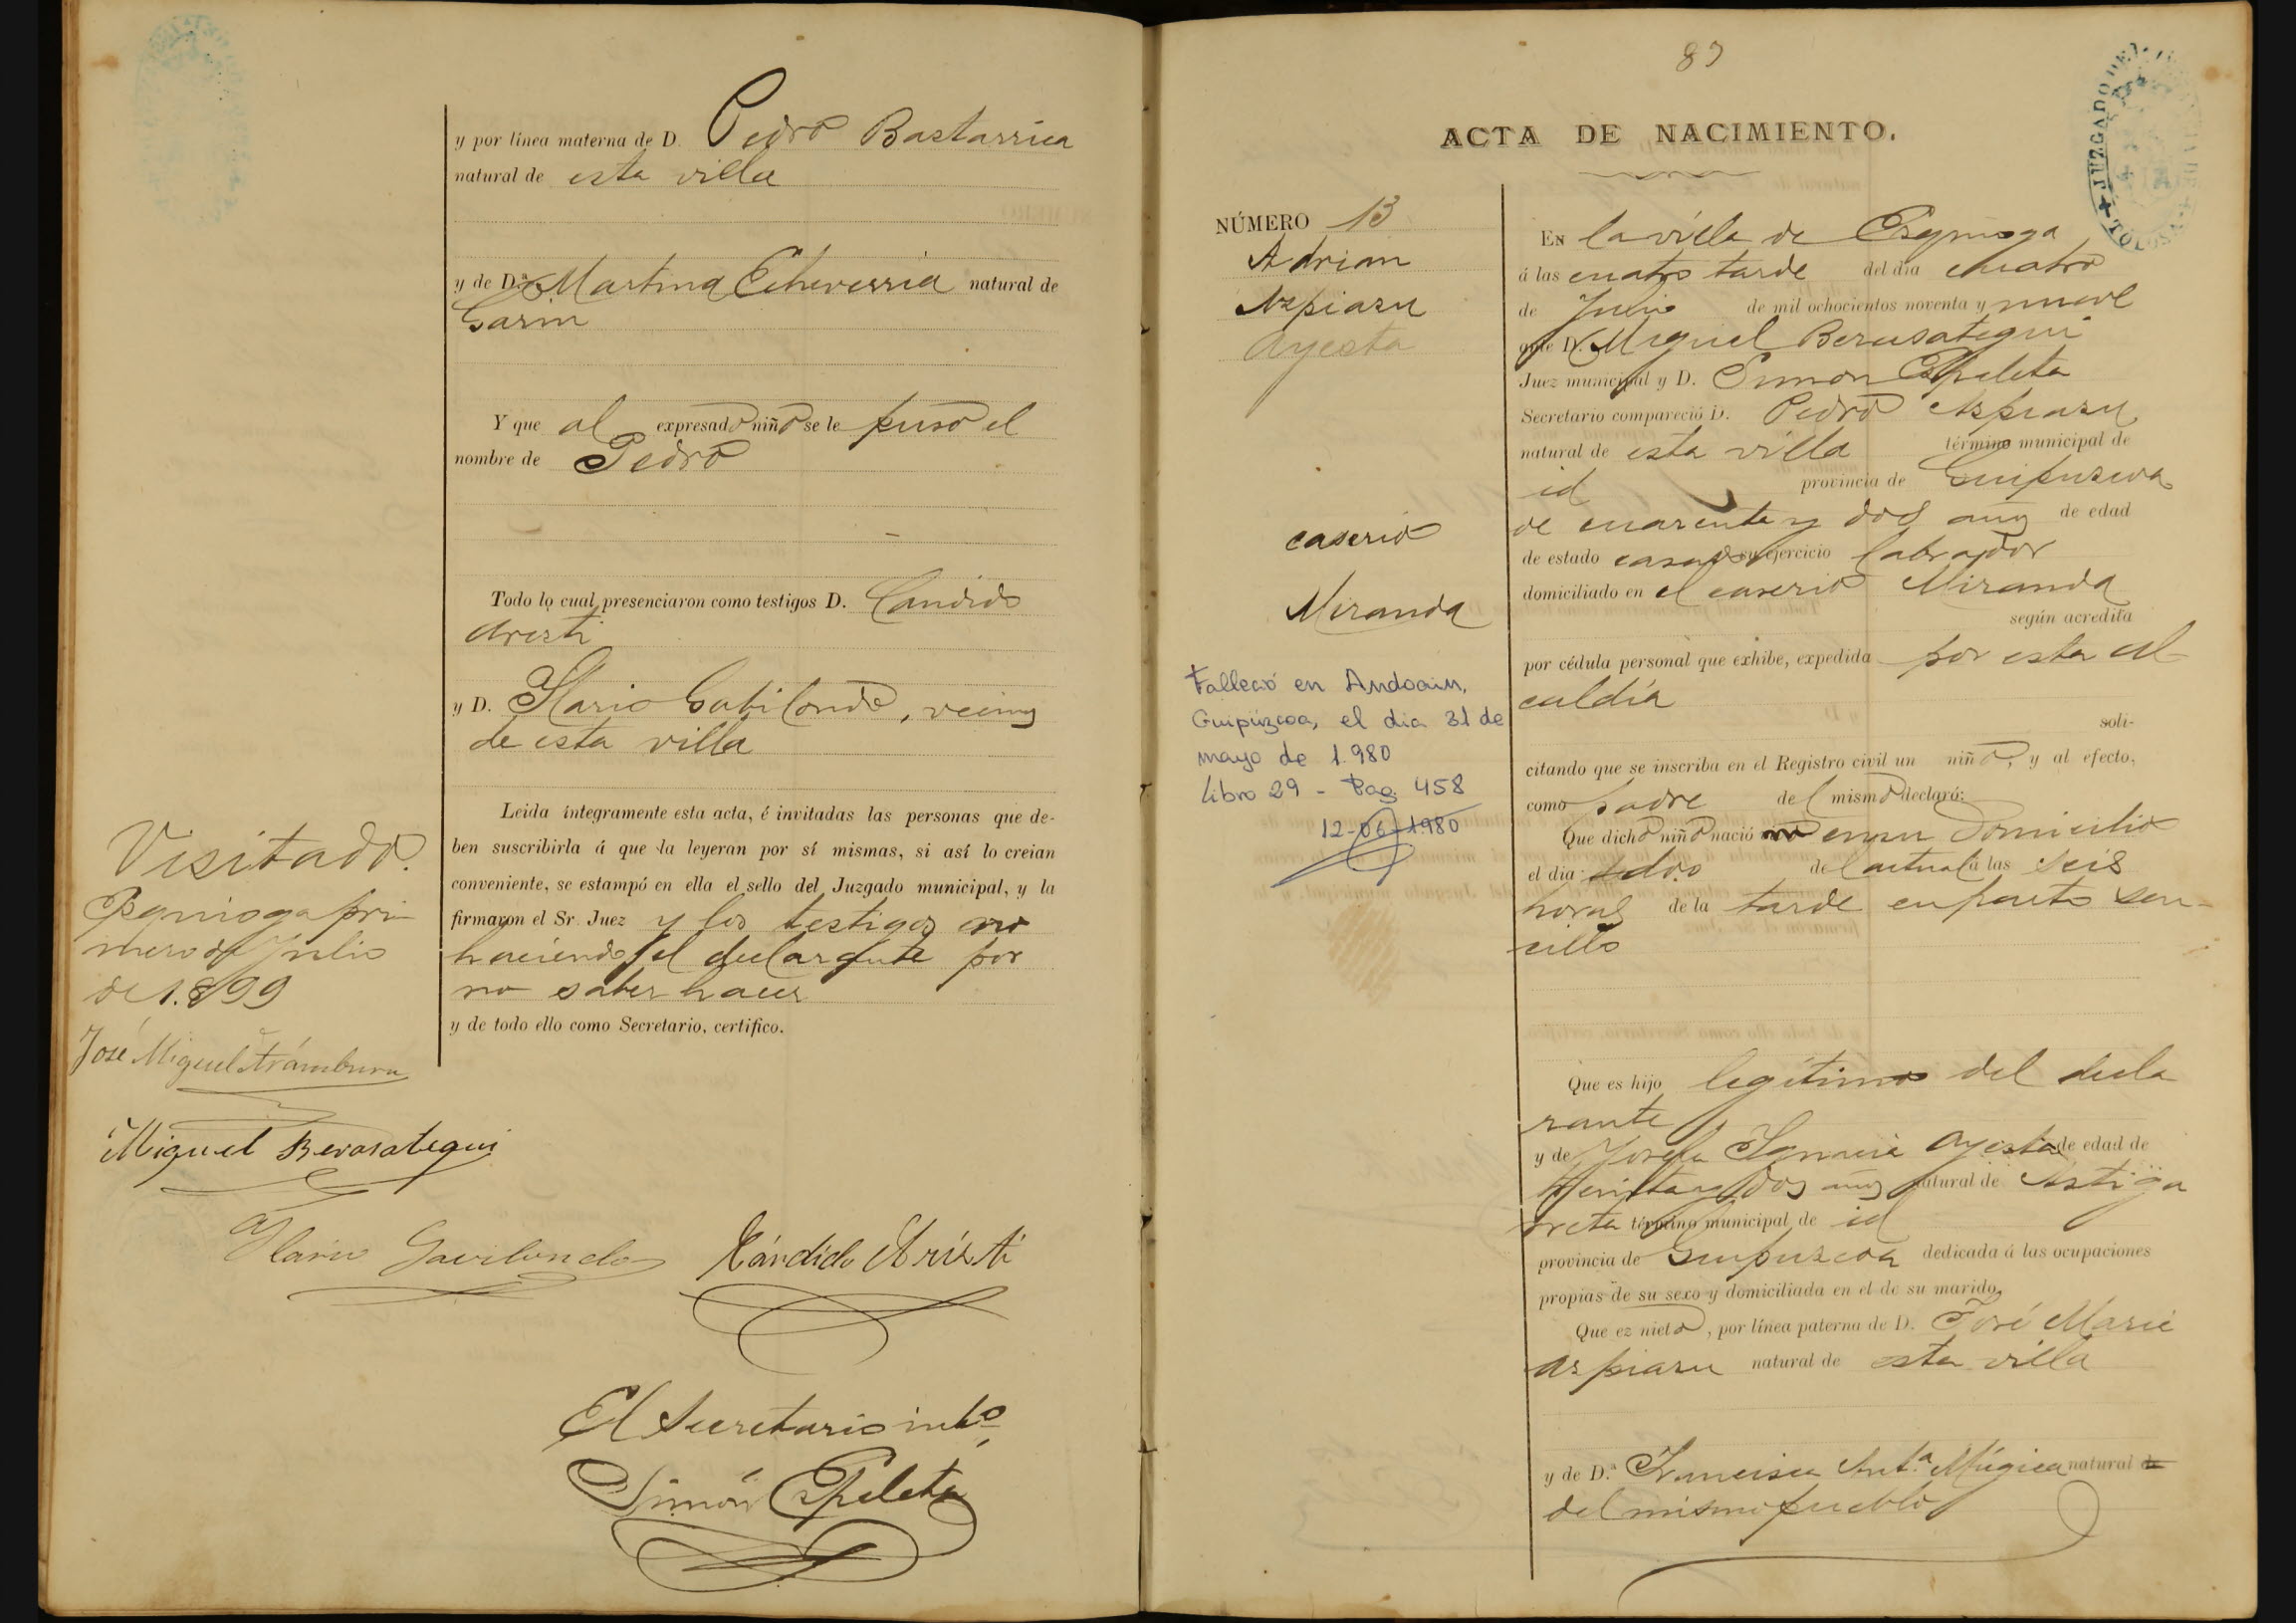 y por línea materna de D. Pedro Bastarrica
natural de esta villa
y de D.ª Martina Echeverria natural de
Garin
Y que al expresado niño se le puso el
nombre de Pedro
Todo lo cual presenciaron como testigos D. Candido
Aresti
y D. Ylario Gabilondo, vecinos
de esta villa
Leida íntegramente esta acta, é invitadas las personas que de-
ben suscribirla á que la leyeran por sí mismas, si así lo creian
conveniente, se estampó en ella el sello del Juzgado municipal, y la
firmaron el Sr. Juez y los testigos no
haciendo el declarante por
no saber hacer
y de todo ello como Secretario, certifico.
Visitado.
pri-
mero de Julio
de 1.899
José Miguel Arámburu
Miguel Berasategui
Ylario Gavilondo
Cándido Aristi
El Secretario intº,
Simón Ezpeleta
89
ACTA DE NACIMIENTO.
JUZGADO
TOLOSA
NÚMERO 13
Adrian
Azpiazu
Ayesta
caserio
Miranda
Falleció en Andoain,
Guipúzcoa, el dia 31 de
mayo de 1.980
Libro 29 - Pag. 458
12-06-1980
EN la villa de
á las cuatro tarde del dia cuatro
de de mil ochocientos noventa y nueve
ante D. Miguel Berasategui
Juez municipal y D. Simon Ezpeleta
Secretario compareció D. Pedro Azpiazu
natural de esta villa término municipal de
id provincia de Guipuzcoa
de cuarenta y dos años de edad
de estado casado su ejercicio labrador
domiciliado en el caserio Miranda
según acredita
por cédula personal que exhibe, expedida por esta al-
caldía
soli-
citando que se inscriba en el Registro civil un niño, y al efecto,
como padre del mismo declaró:
Que dicho niño nació en su domicilio
el dia del actual á las seis
horas de la tarde en parto sen-
cillo
Que es hijo legítimo del decla
rante
y de Josefa Ygnacia Ayesta de edad de
treinta y dos años natural de Astiga
rreta término municipal de id
provincia de Guipuzcoa dedicada á las ocupaciones
propias de su sexo y domiciliada en el de su marido,
Que ez nieto, por línea paterna de D. José Maria
Azpiazu natural de esta villa
y de D.ª Francisca Ant.ª Múgica natural de
del mismo pueblo